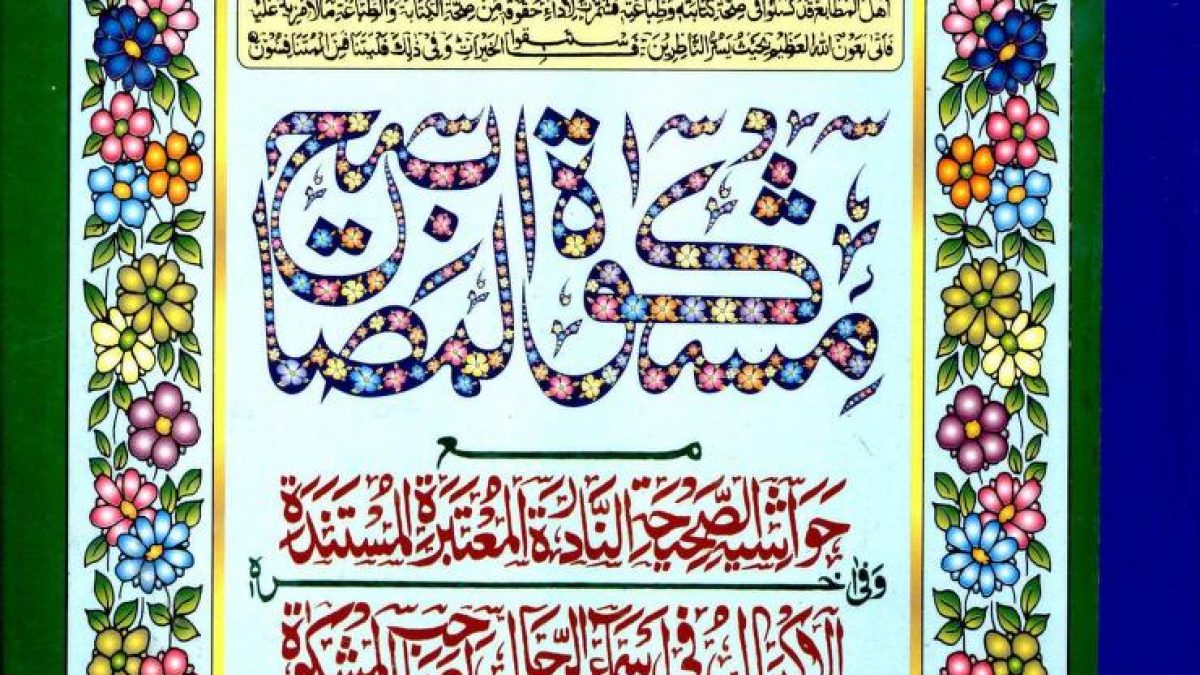 اهل المطابع قد كسلوا فى صحة كتابته وطباعته فشمرت لاداء حقوقه من صحة الكتابة والطباعة مالا مزيد عليه
فاتى بعون الله العظيم بحيث يسر الناظرين فاستبقوا الخيرات وفى ذلك فليتنافس المتنافسون
مشكوة المصابيح
مع
حواشيه الصحيحة النادرة المعتبرة المستندة
وفى اخره
الاكمال فى اسماء الرجال لصاحب المشكوة